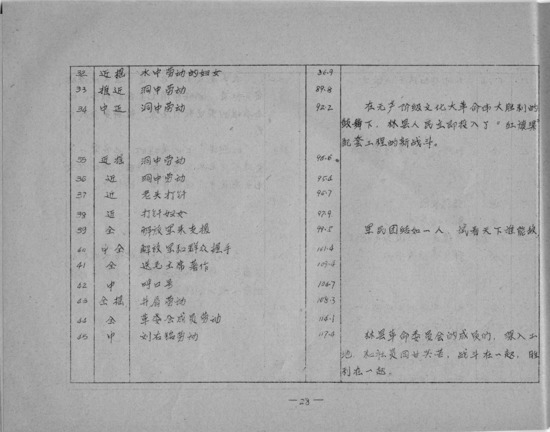 32 近摇 水中劳动的妇女 86.9
33 摇近 洞中劳动 89.8
34 中近 洞中劳动 92.2 在无产阶级文化大革命伟大胜利的
鼓舞下，林县人民立即投入了"红旗渠
配套工程的新战斗。
35 近摇 洞中劳动
36 近 洞中劳动 95.4
37 近 老头打钎 96.7
38 近 打钎妇女 97.9
39 全 解放军来支援 98.5 军民团结如一人，试看天下谁能敌
40 中全 解放军和群众握手 101.4
41 全 送毛主席著作
42 中 呼口号 106.7
43 全摇 并肩劳动 108.3
44 全 革委会成员劳动 114.1
45 中 刘右福劳动 117.4 林县革命委员会的成员们，深入工
地，和社员同甘共苦，战斗在一起，胜
利在一起。
—28—